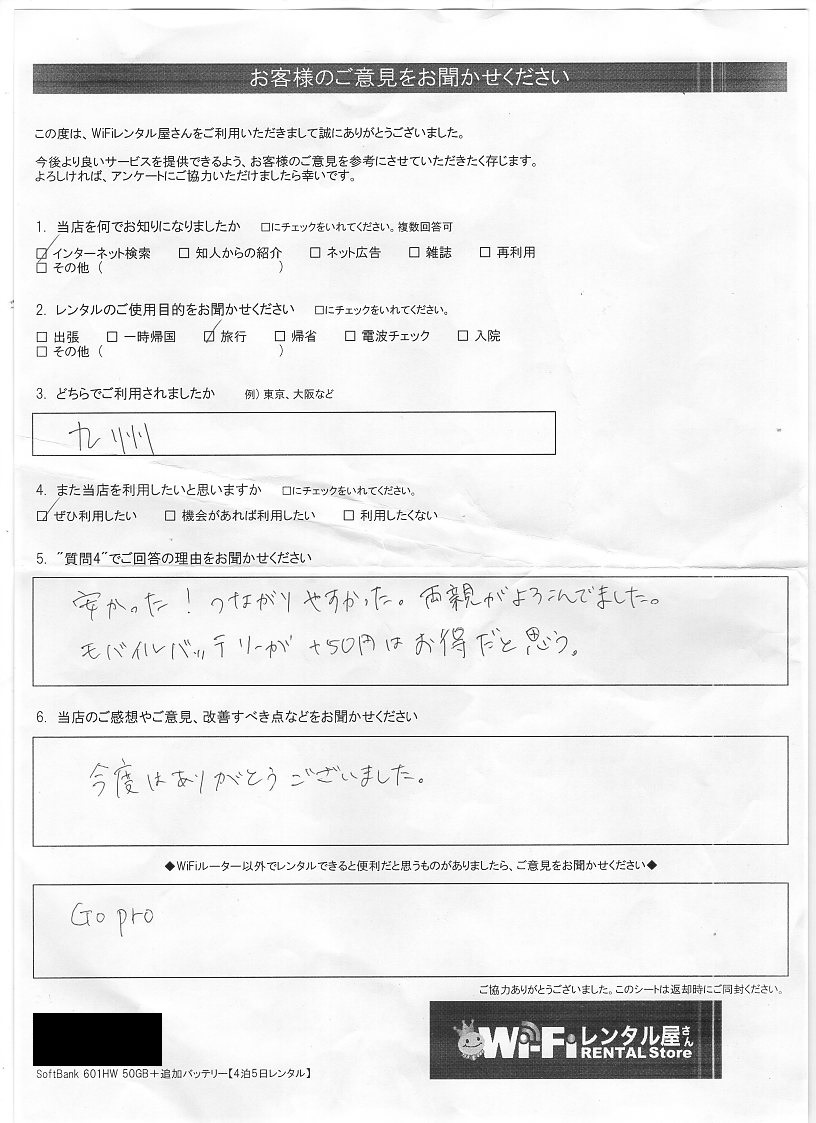 お客様のご意見をお聞かせください
この度は、WiFiレンタル屋さんをご利用いただきまして誠にありがとうございました。
今後より良いサービスを提供できるよう、お客様のご意見を参考にさせていただきたく存じます。
よろしければ、アンケートにご協力いただけましたら幸いです。
1. 当店を何でお知りになりましたか □にチェックをいれてください。複数回答可
☑インターネット検索 □ 知人からの紹介 □ ネット広告 □ 雑誌 □ 再利用
□ その他 ( )
2. レンタルのご使用目的をお聞かせください □にチェックをいれてください。
□ 出張 □ 一時帰国 ☑ 旅行 □ 帰省 □ 電波チェック □ 入院
□ その他 ( )
3. どちらでご利用されましたか 例) 東京、大阪など
九州
4. また当店を利用したいと思いますか □にチェックをいれてください。
☑ぜひ利用したい □ 機会があれば利用したい □ 利用したくない
5. "質問4"でご回答の理由をお聞かせください
安かった！つながりやすかった。両親がよろこんでました。
モバイルバッテリーが +50円はお得だと思う。
6. 当店のご感想やご意見、改善すべき点などをお聞かせください
今度はありがとうございました。
◆WiFiルーター以外でレンタルできると便利だと思うものがありましたら、ご意見をお聞かせください◆
Go pro
ご協力ありがとうございました。このシートは返却時にご同封ください。
Wi-Fiレンタル屋さん
RENTAL Store
SoftBank 601HW 50GB＋追加バッテリー【4泊5日レンタル】